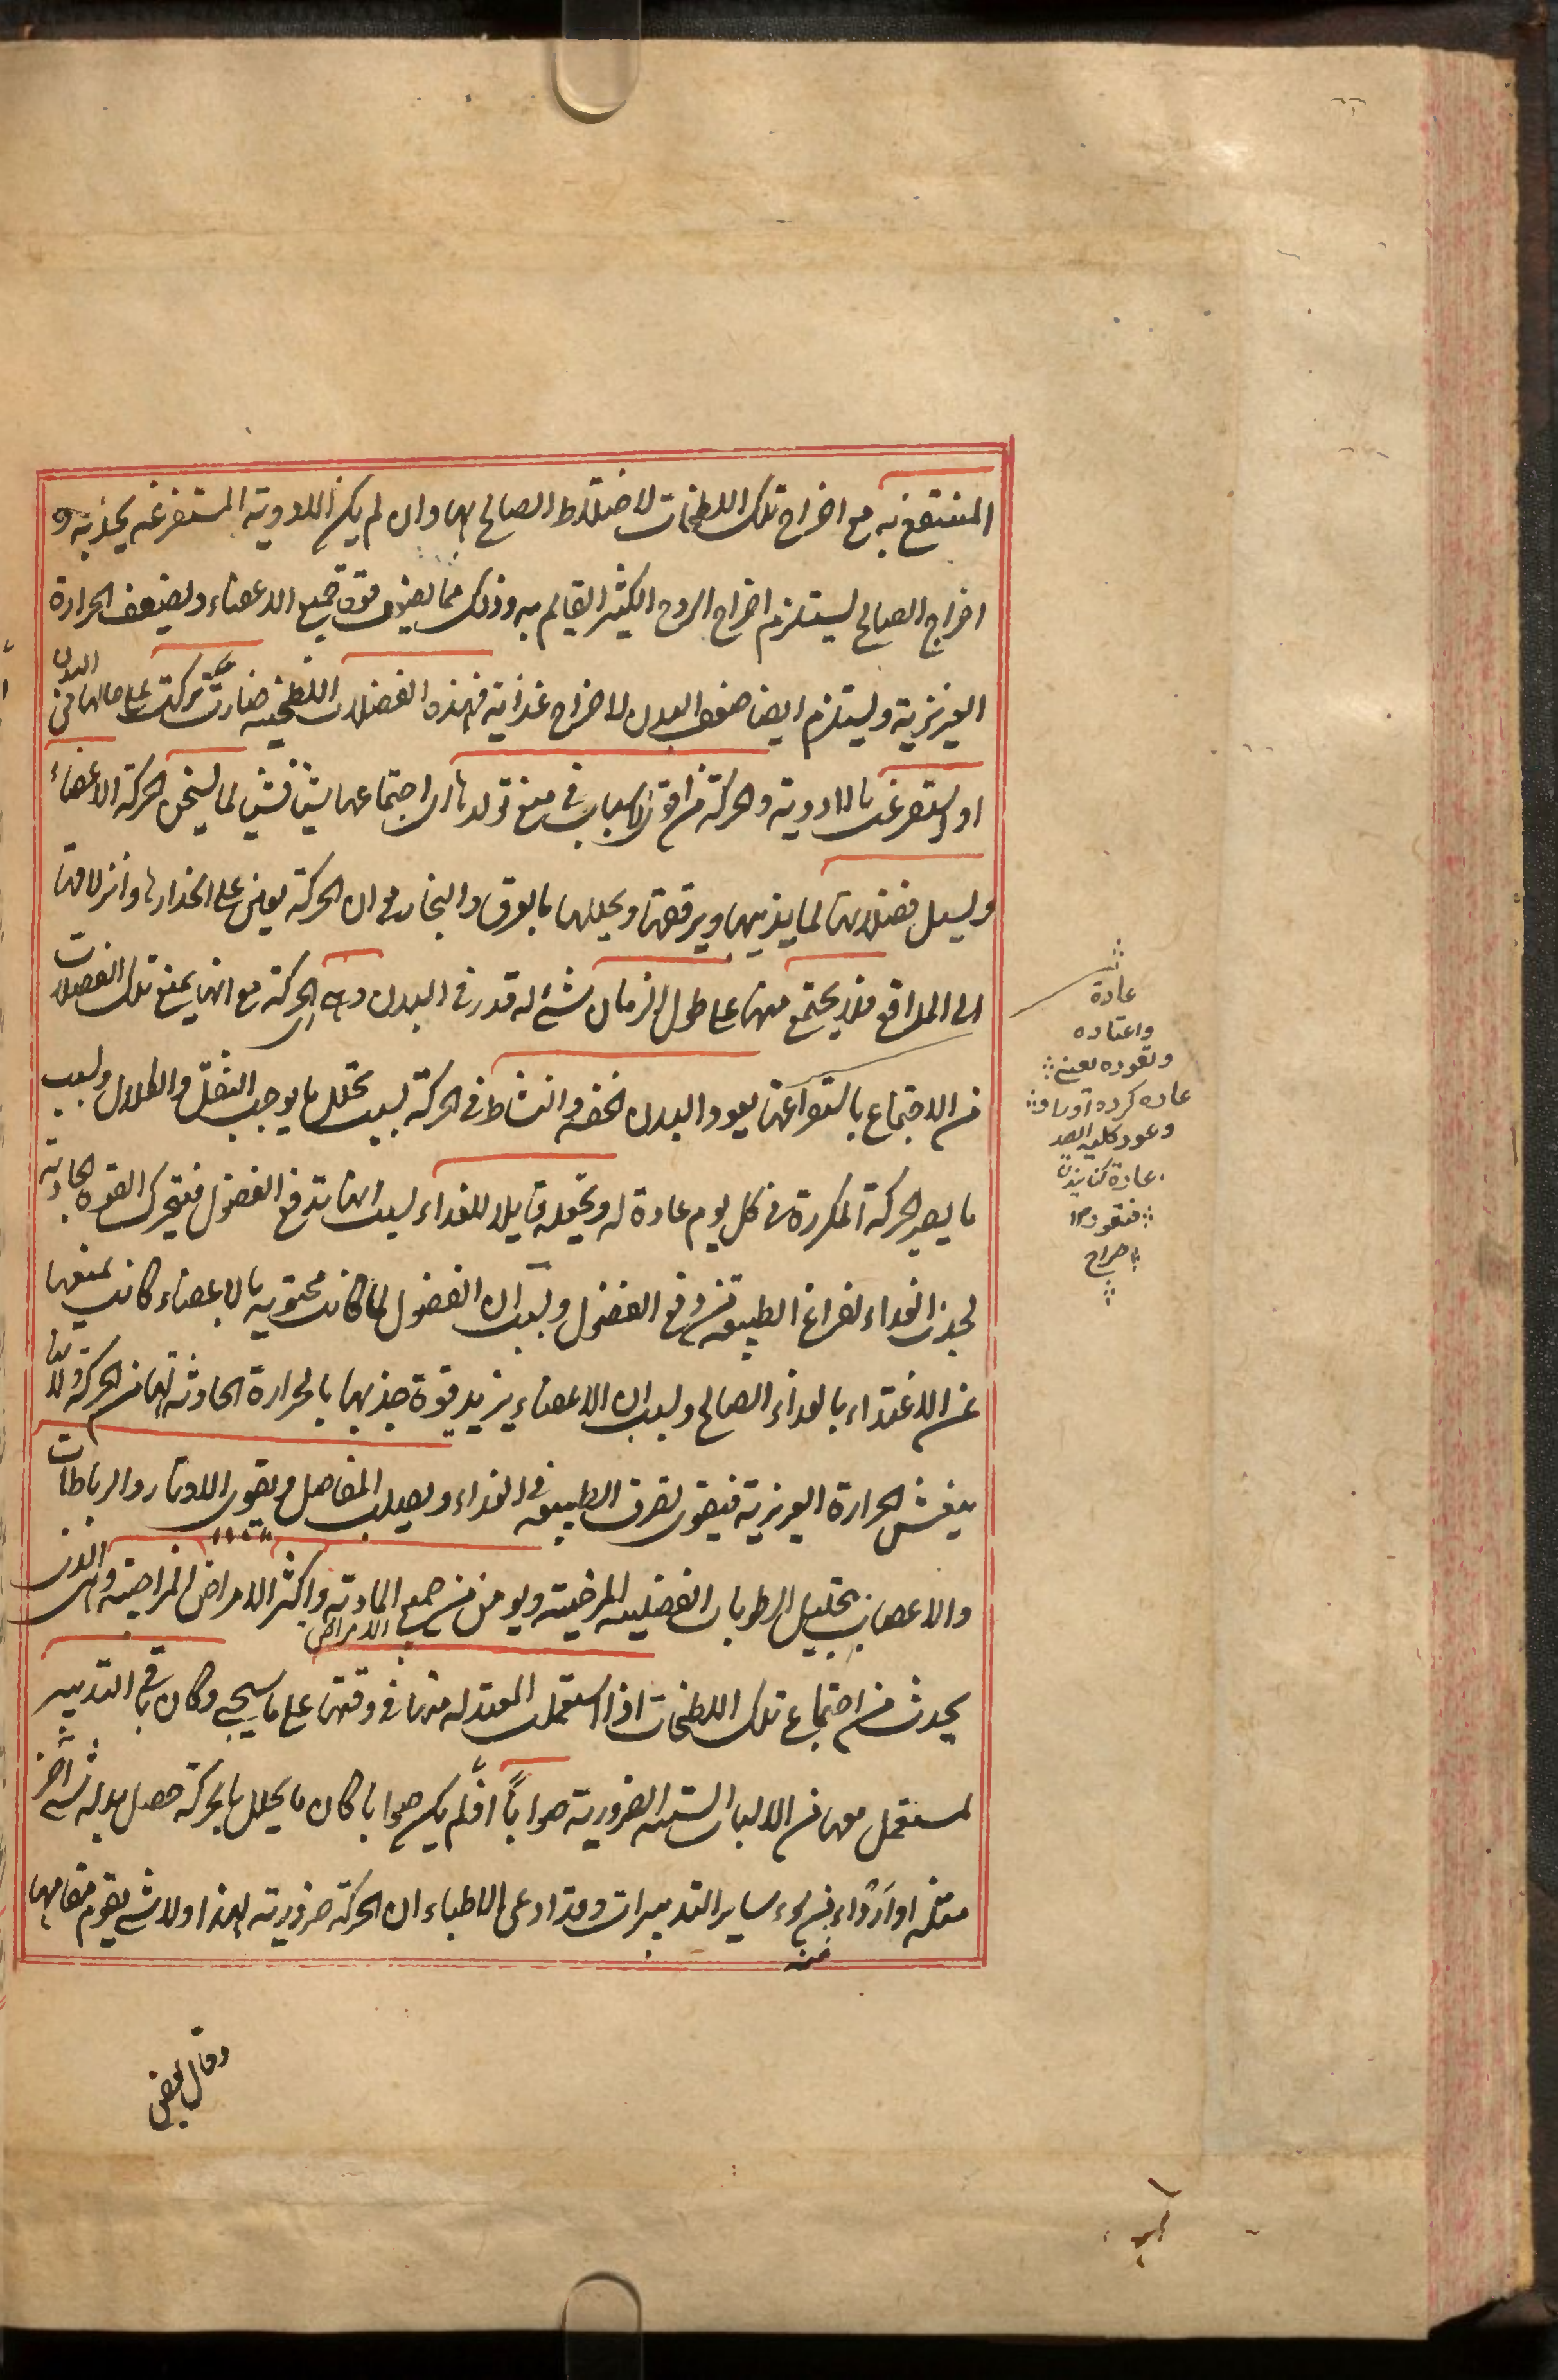 المنتفع به مع اخراج تلك اللطخات لاختلاط الصالح بها وان لم يكن الادوية المستفرغه يجذبه و
اخراج الصالح يستلزم اخراج الروح الكثير القايم به وذلك مما يضعف قوى جميع الاعضاء ويضعف الحرارة
الغريزية ويستلزم ايضا ضعف البدن لاخراج غذائية فهذه الفضلات اللطخيه ضارت تركت على حالها في البدن
او استفرغت بالادوية والحركة من اقوى الاسباب في منع تولدها اى اجتماعها شيئا فشيئا لما يسخن الحركة الاعضاء
ويسيل فضلاتها لما يذيبها ويرققها ويحللها بالعرق والبخار مع ان الحركة يعين على انحدارها وانزلاقها
الى المدافع فلا يجتمع منها على طول الزمان شئ له قدر في البدن وهى اى الحركة مع انها يمنع تلك الفضلات
من الاجتماع بالستواغها يعود البدن الخفه والنشاط في الحركة بسبب تحلل ما يوجب الثقل والكلال وبسبب
ما يصير الحركة المكررة في كل يوم عادة له ويجعله قابلا للغذاء بسبب انها يدفع الفضول فيتحرك القوة الجاذبة
لجذب الغذاء لفراغ الطبيعة من دفع الفضول وبسبب ان الفضول لما كانت محتويه بالاعضاء كانت يمنعها
عن الاغتذاء بالغذاء الصالح وبسبب ان الاعضاء يزيد قوة جذبها بالحرارة الحادثة لها من الحركة ولانها
ينعش الحرارة الغريزية فيقوى تصرف الطبيعة في الغذاء ويصلب المفاصل ويقوى الاوتار والرباطات
والاعصاب بتحليل الرطوبات الفضلية المرخية ويومن من جميع الامراض المادية واكثر الامراض المزاجية وهى الذى
يحدث من اجتماع تلك اللطخات اذا استعملت المعتدله منها في وقتها على ما سيجئ وكان باقى التدبير
لمستعمل معها من الاسباب الستة الضرورية صوابا اذ لم يكن صوابا كان ما يحلل بالحركة حصل بدله شئ اخر
مثله او اردأ منه من سوء ساير التدبيرات وقد ادعى الاطباء ان الحركة ضرورية لهذا ولا شئ يقوم مقامها
وقال بعض
عادة
واعتاده
وتعوده بمعنى
عاده كرده اورا
وعود كلبه الصيد
عادة كنانيدن
فتعود ١٢
صراح